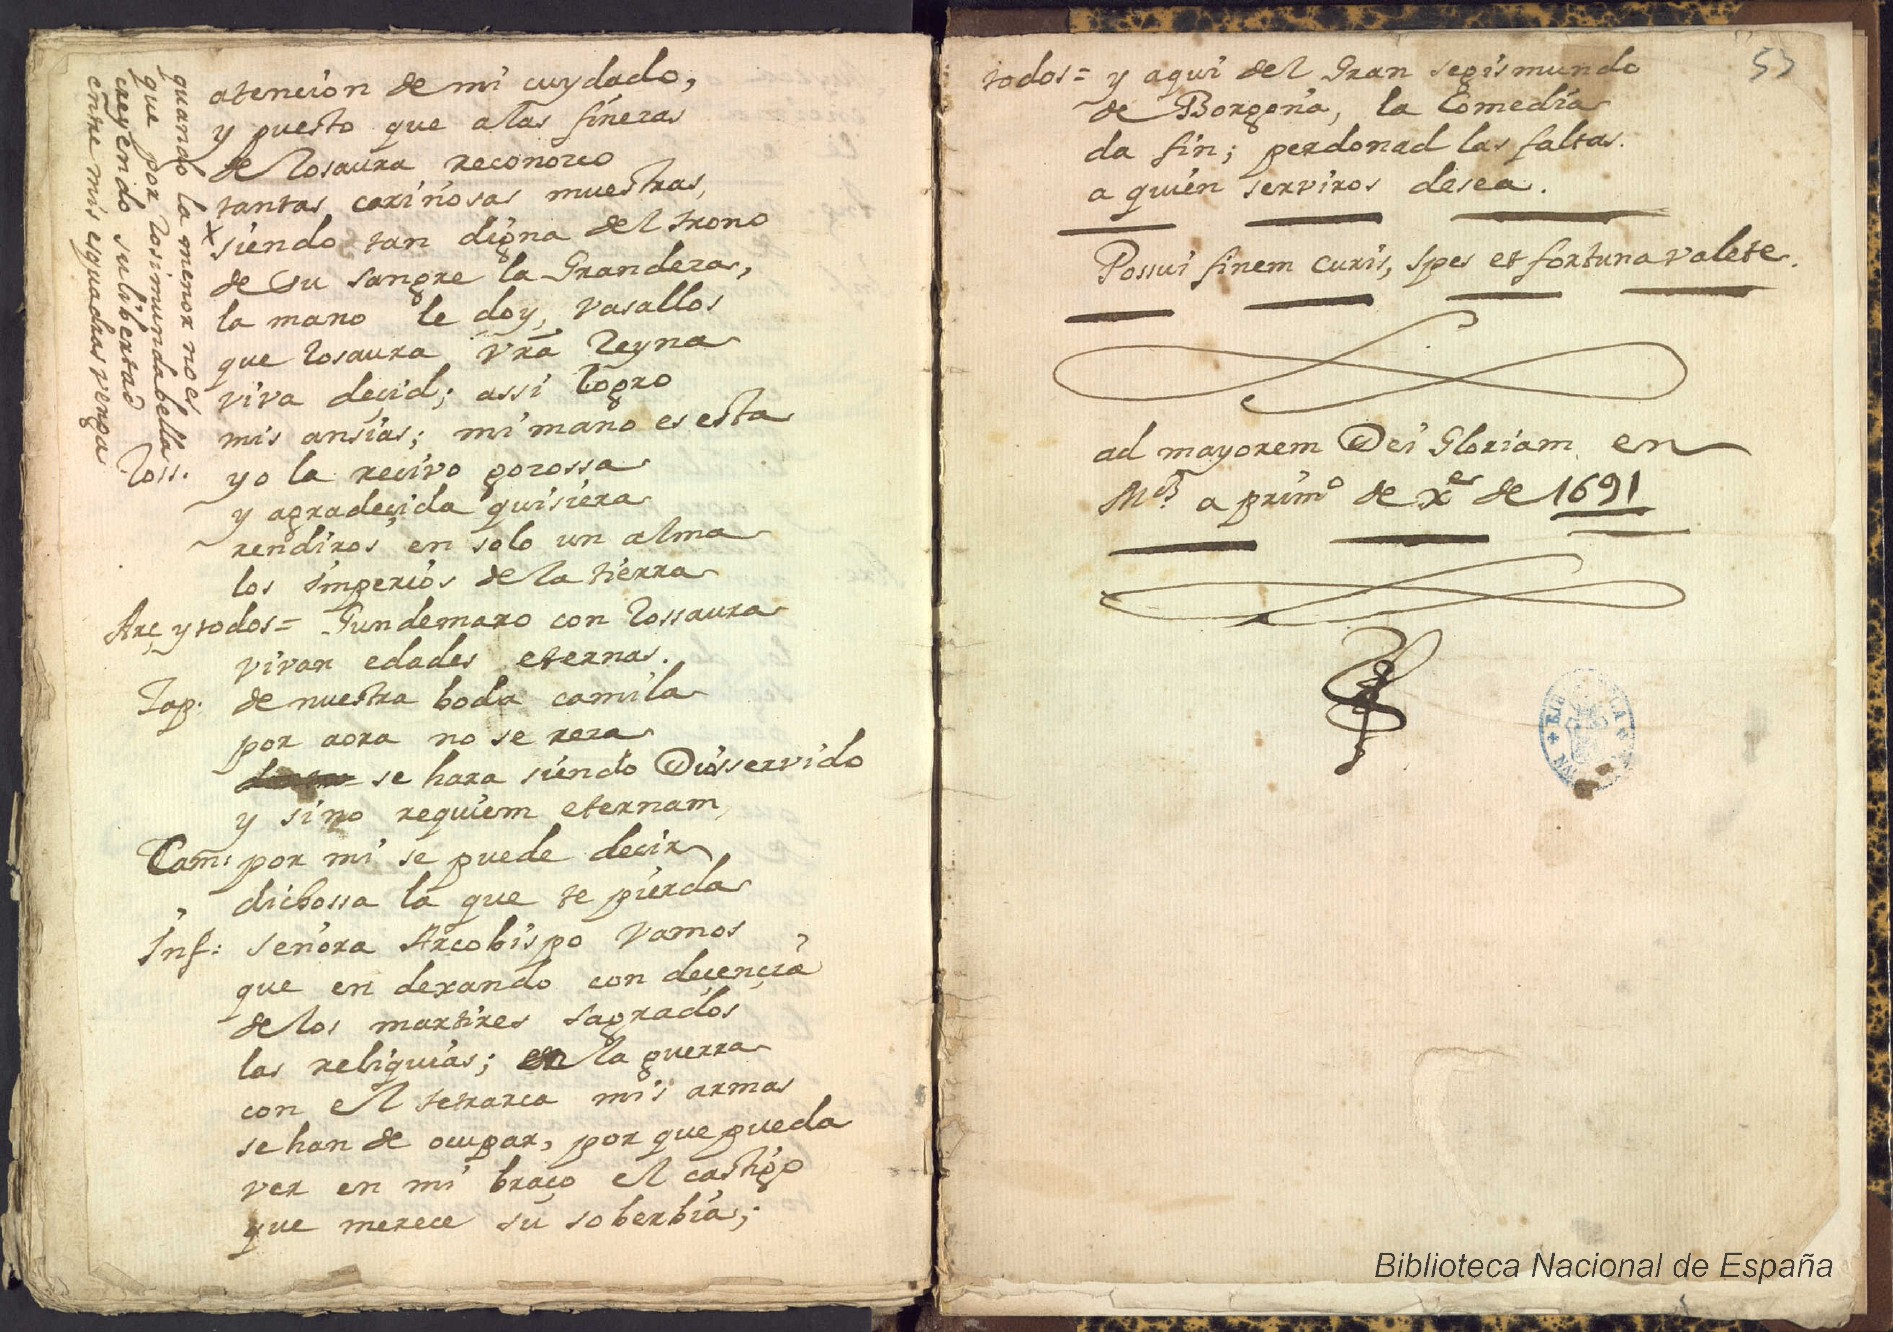 atencion de mi cuydado,
y puesto que a las finezas
de Rosaura reconozco
tantas cariñosas muestras,
siendo tan digna del trono
de su sangre la Grandeza,
la mano le doy, vasallos
que Rosaura vr̃a Reyna
viva deçid; assi logro
mis ansias; mi mano es esta
Ross. yo la recivo gozossa
y agradeçida quisiera
rendiros en solo un alma
los imperios de la tierra
Arç, y todos= Gundemaro con Rossaura
vivan edades eternas.
Tap. de nuestra boda camila
por aora no se reza
se hara siendo Dios servido
y sino requiem eternam,
Cam: por mi se puede decir
dichossa la que te pierda
Inf: señora Arcobispo vamos
que en dexando con deçençia
de los martires sagrados
las reliquias; en la guerra
con el tetrarca mis armas
se han de ocupar, porque pueda
ver en mi braço el castigo
que merece su soberbia;
quando la menor no es
que por Rosimunda bella
creyendo su libertad
entre mis esquadras venga
53
todos= y aqui del Gran segismundo
de Borgoña, la Comedia
da fin; perdonad las faltas.
a quien serviros desea.
Possui finem curis, spes et fortuna valete.
ad mayorem Dei Gloriam en
M.d a prim.o de x.e de 1691
Biblioteca Nacional de España